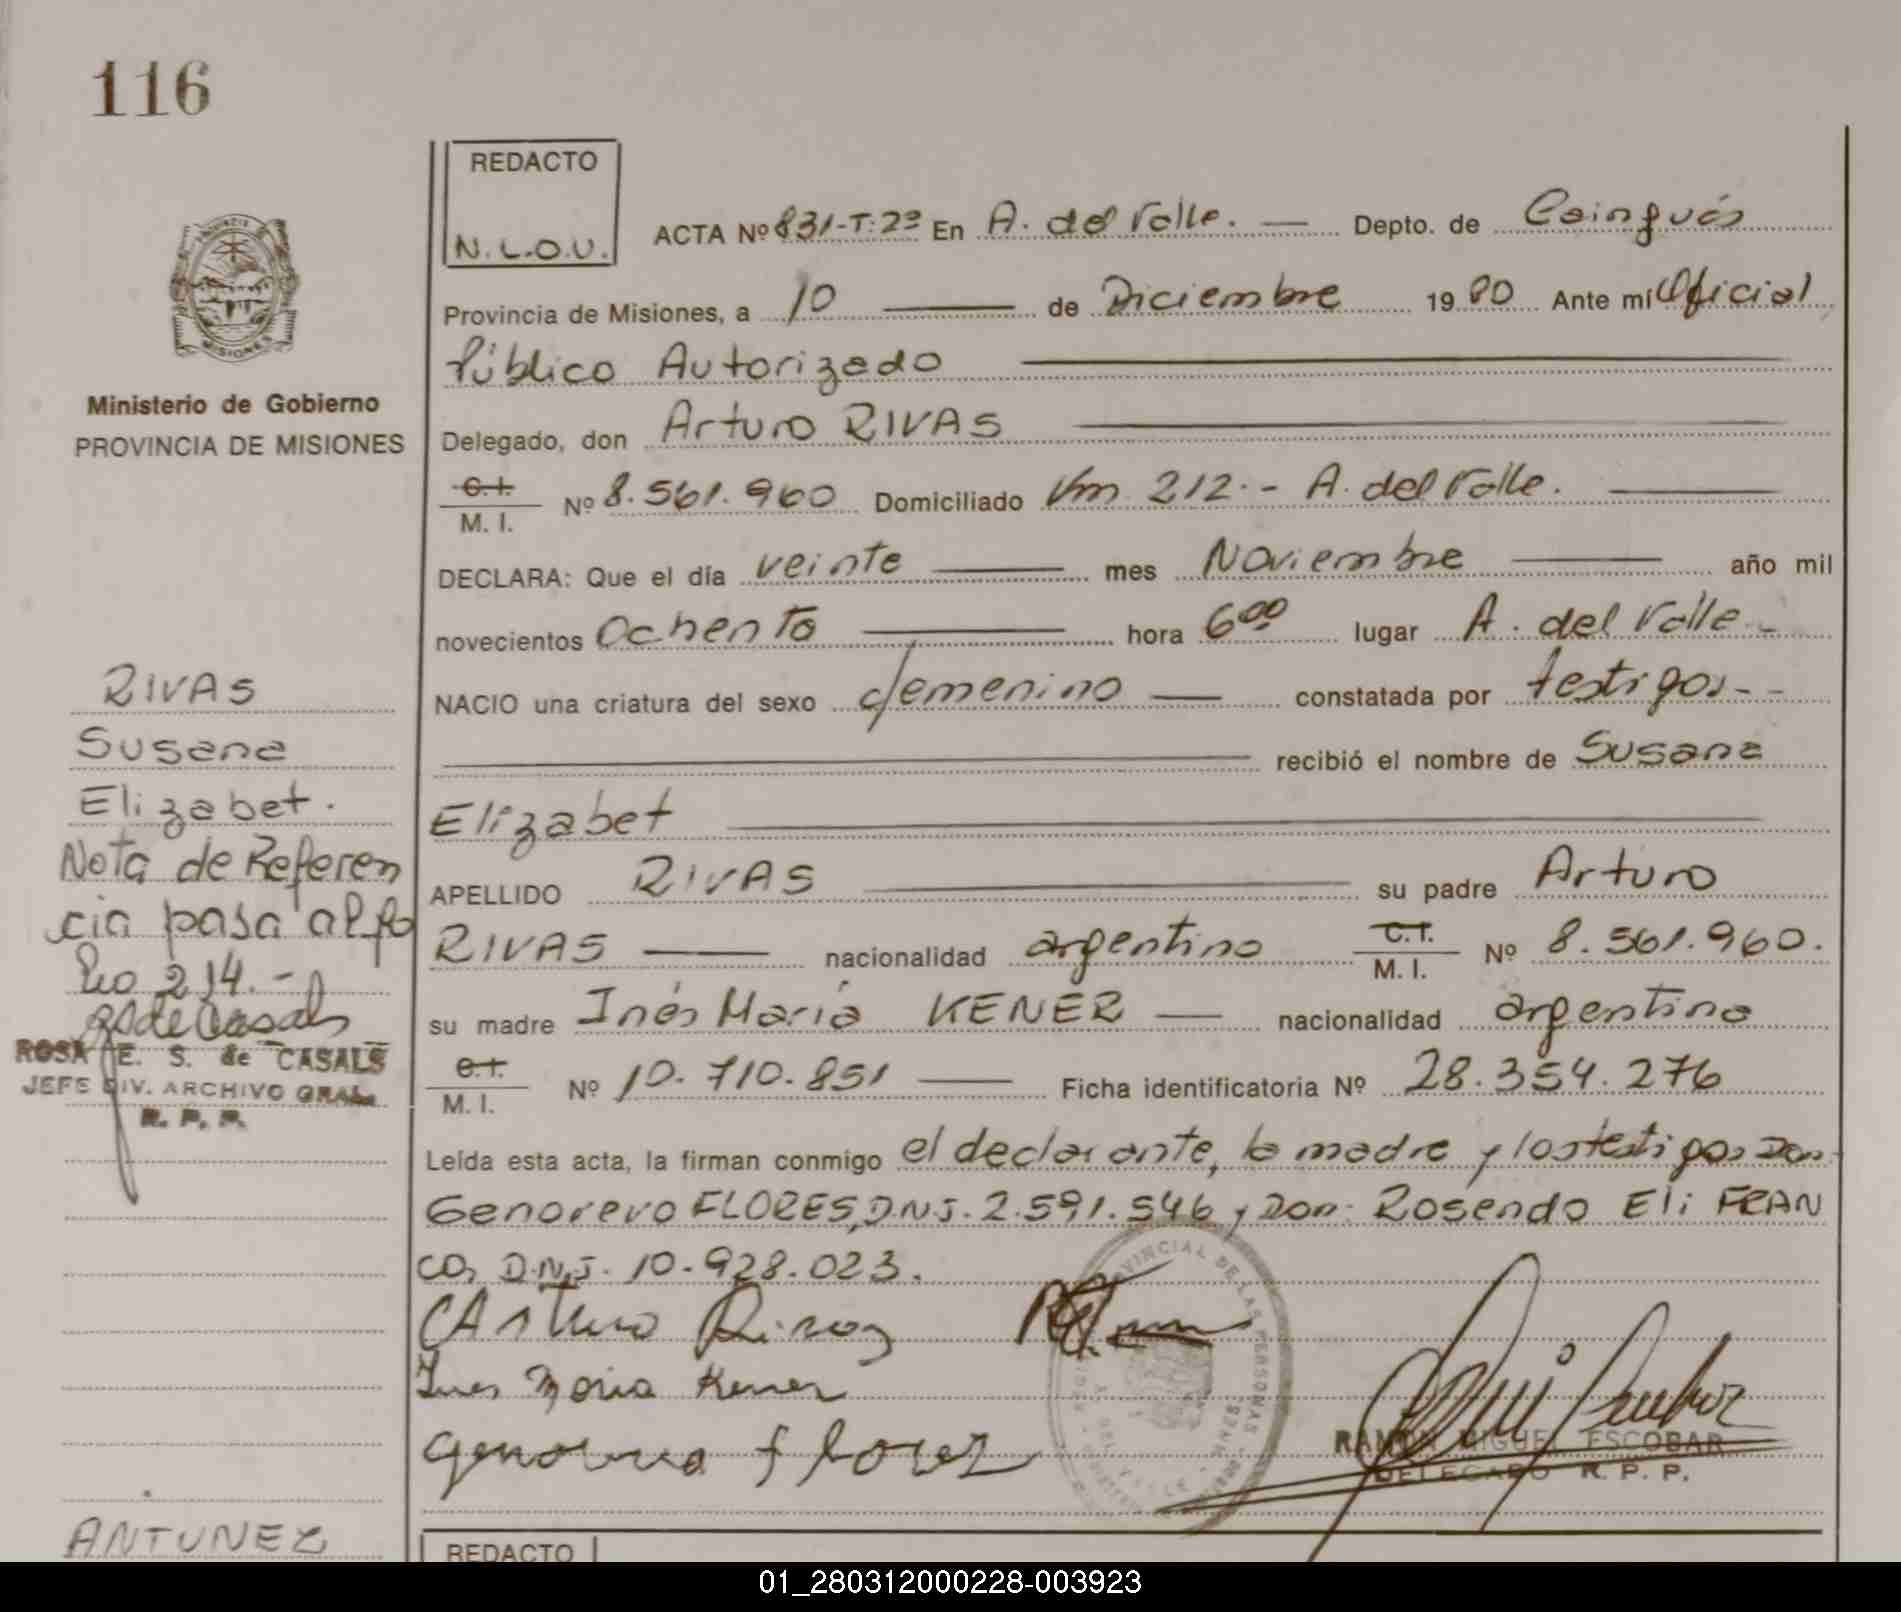 116
REDACTO
N.L.O.U.
ACTA Nº 831-T:2º En A. del Valle. — Depto. de Cainguás
Provincia de Misiones, a 10 — de Diciembre 1980 Ante mí Oficial
Público Autorizado
Delegado, don Arturo RIVAS
C. I.
M. I. Nº 8.561.960 Domiciliado Km 212.- A. del Valle.
DECLARA: Que el día veinte — mes Noviembre — año mil
novecientos Ochenta — hora 600 lugar A. del Valle -
NACIO una criatura del sexo femenino — constatada por testigos - -
recibió el nombre de Susana
Elizabet
APELLIDO RIVAS — su padre Arturo
RIVAS — nacionalidad argentino C. I. M. I. Nº 8.561.960.
su madre Inés María KENER — nacionalidad argentina
C. I.
M. I. Nº 10.710.851 — Ficha identificatoria Nº 28.354.276
Leída esta acta, la firman conmigo el declarante, la madre y los testigos Don
Genorevo FLORES, D.N.I. 2.591.546 y Don: Rosendo Eli FRAN
CO, D.N.I. 10.928.023.
Arturo Rivas
Ines Maria Kener
Genorevo Florez
RAMON MIGUEL ESCOBAR
DELEGADO R. P. P.
PROVINCIAL DE LAS PERSONAS
PROVINCIA DE
MISIONES
Ministerio de Gobierno
PROVINCIA DE MISIONES
RIVAS
Susana
Elizabet.
Nota de Referen
cia pasa al fo
lio 214.-
RSdeCasals
ROSA E. S. de CASALS
JEFE DIV. ARCHIVO GRAL.
R. P. P.
ANTUNEZ
REDACTO
01_280312000228-003923